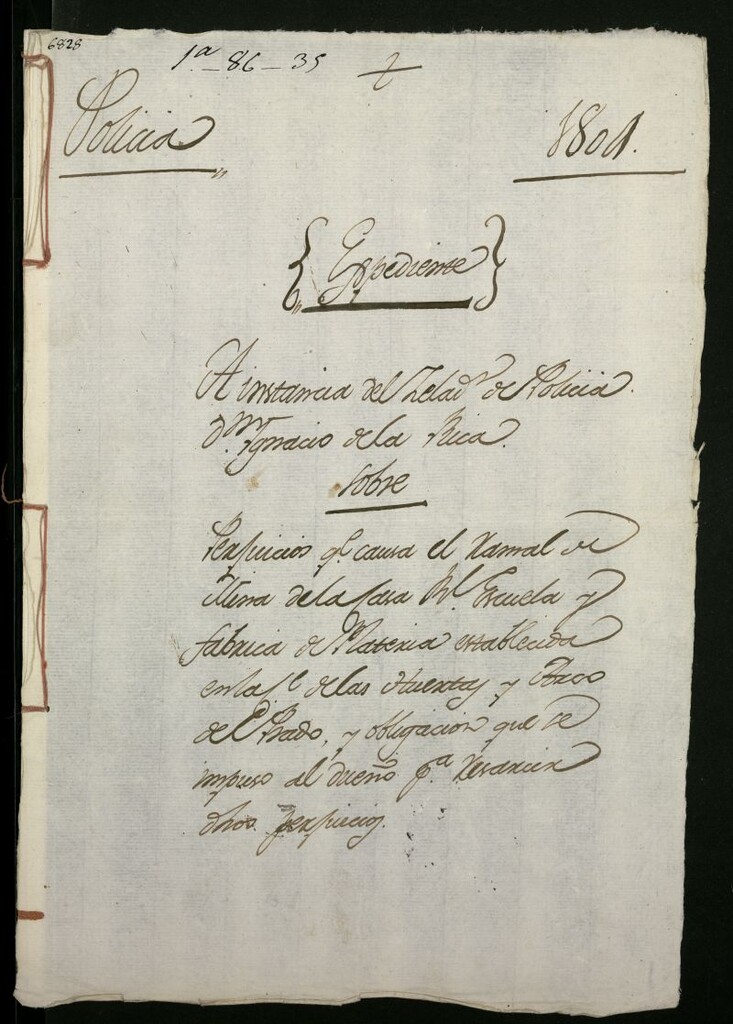 6828
1ª - 86 - 35
Policia
1801.
Expediente
A instancia del Zelad.r de Policia
D.n Ygnacio de la Rica.
Sobre
Perjuicios q.e causa el Ramal de
Mina de la Casa R.l Escuela y
fabrica de Plateria establecida
en la C.e de las Huertas y Paseo
del Prado, y obligacion que se
impuso al dueño p.ª resarcir
dhos. perjuicios.